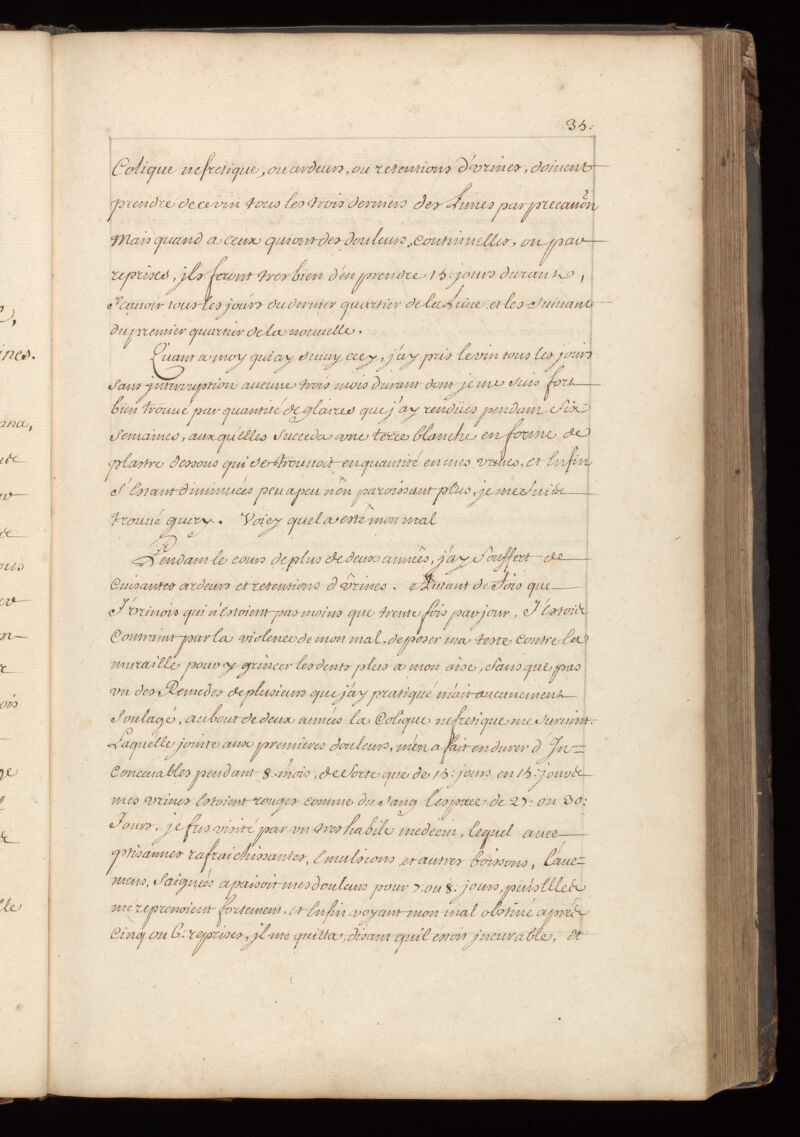 35.
Colique nefretique, ou ardeurs, ou retentions d'vrines, doiuent
prendre de ce vin tous les trois derniers des Lunes par precauõn
Mais quand a ceux qui ont des douleurs, continuelles, ou par
reprises, ils feront tres bien d'en prendre 15: jours durant,
Scauoir tous les jours du dernier quartier de la Lune, et les suiuant
du premier quartier de la nouuelle.
Quant a moy qui ay suiuy cecy, j'ay pris le vin tous les jours
Sans jnterruption aucune trois mois durant dont je me suis fort
bien trouué par quantité de glaires que j'ay rendües pendant six
Semaines, aux qu'elles succeda vne terre blanche en forme de
plastre dessous qui se trouuoit en quantité en mes vrines, et Enfin
S'estant diminuées peu a peu n'en paroissant plus, je me suis
trouué guery. Voicy quel a esté mon mal
Pendant le cours de plus de deux années, j'ay souffert de
Cuisantes ardeurs et retentions d'Vrines. Autant de fois que
J'vrinois qui n'estoient pas moins que trente fois par jour, J'estois
Contraint par la violence de mon mal, de poser ma teste contre la
muraille pour y grincer les dents plus a mon aise, sans que pas
vn des Remedes de plusieurs que j'ay pratiqué m'ait aucunement
Soulagé, au bout de deux années la Colique nefretique me suruint.
Laquelle jointe aux premieres douleurs, m'en a fait endurer d'Jn-
Conceuables pendant 8. mois, de sorte que de 15: jours en 15: jours
mes vrines Estoient rouges comme du Sang l'espace de 27: ou 30:
Jours, je fus visité par vn tres habile medecin, lequel auec
ptisannes rafraichissantes, Emulsions, et autres boissons, Laue-
mens, Saignées apaisoit mes douleurs pour 7. ou 8: jours, puis Elles
me reprenoient fortement, et Enfin voyant mon mal obstiné apres
Cinq ou 6: reprises, jl me quitta, disant qu'il estoit jncurable, et